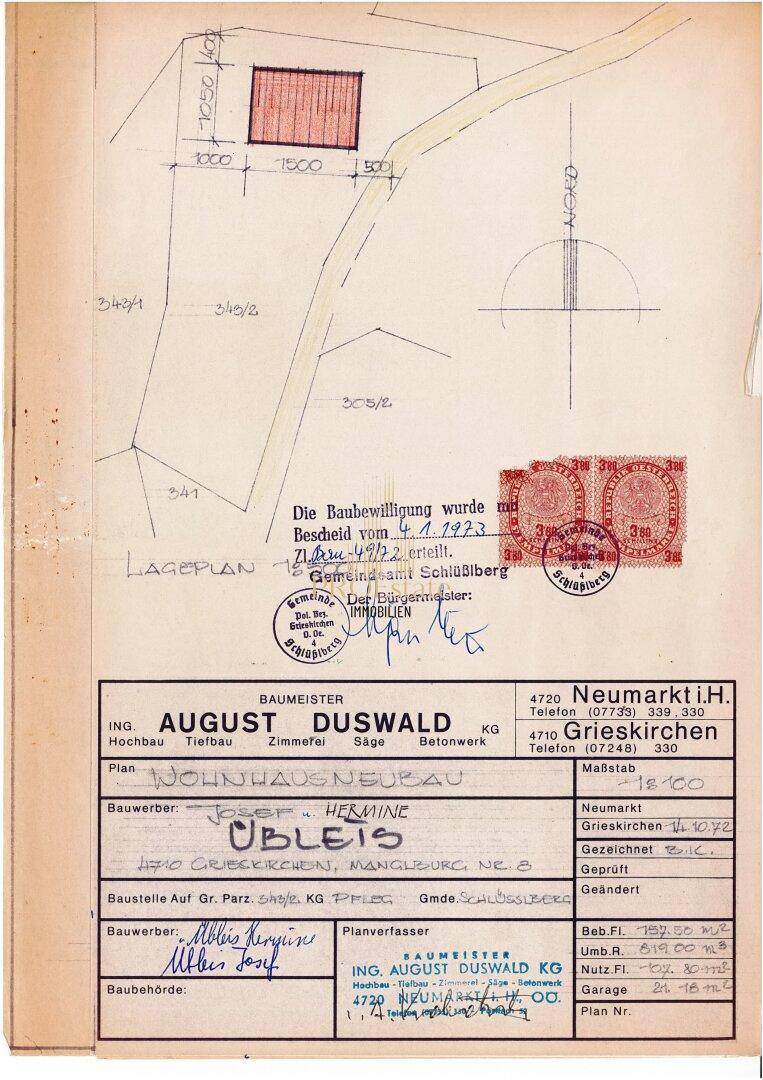 400
1050
1000
1500
500
NORD
343/1
343/2
305/2
341
LAGEPLAN
Die Baubewilligung wurde mit
Bescheid vom 4.1.1973
Zl. Bau-49/72 erteilt.
Gemeindeamt Schlüßlberg
Der Bürgermeister:
IMMOBILIEN
Gemeinde
Pol. Bez.
Grieskirchen
O. Oe.
4
Schlüßlberg
3 80
3 80
REPUBLIK OESTERREICH
REPUBLIK OESTERREICH
3 80
3 80
SCHILLING
3 80
3 80
Gemeinde
Pol. Bez.
O. Oe.
4
Schlüßlberg
BAUMEISTER
ING. AUGUST DUSWALD KG
Hochbau Tiefbau Zimmerei Säge Betonwerk
4720 Neumarkt i. H.
Telefon (07733) 339, 330
4710 Grieskirchen
Telefon (07248) 330
Plan WOHNHAUSNEUBAU
Maßstab
1:100
Bauwerber: JOSEF u. HERMINE
ÜBLEIS
4710 GRIESKIRCHEN, MANGLBURG NR. 8
Neumarkt
Grieskirchen 14.10.72
Gezeichnet B.K.
Geprüft
Geändert
Baustelle Auf Gr. Parz. 343/2 KG PFLEG Gmde. SCHLÜSSLBERG
Bauwerber: Übleis Hermine
Übleis Josef
Baubehörde:
Planverfasser
BAUMEISTER
ING. AUGUST DUSWALD KG
Hochbau - Tiefbau - Zimmerei - Säge - Betonwerk
4720 NEUMARKT i. H., OÖ.
Beb.Fl. 157.50 m²
Umb.R. 819.00 m³
Nutz.Fl. 107.80 m²
Garage 21.18 m²
Plan Nr.